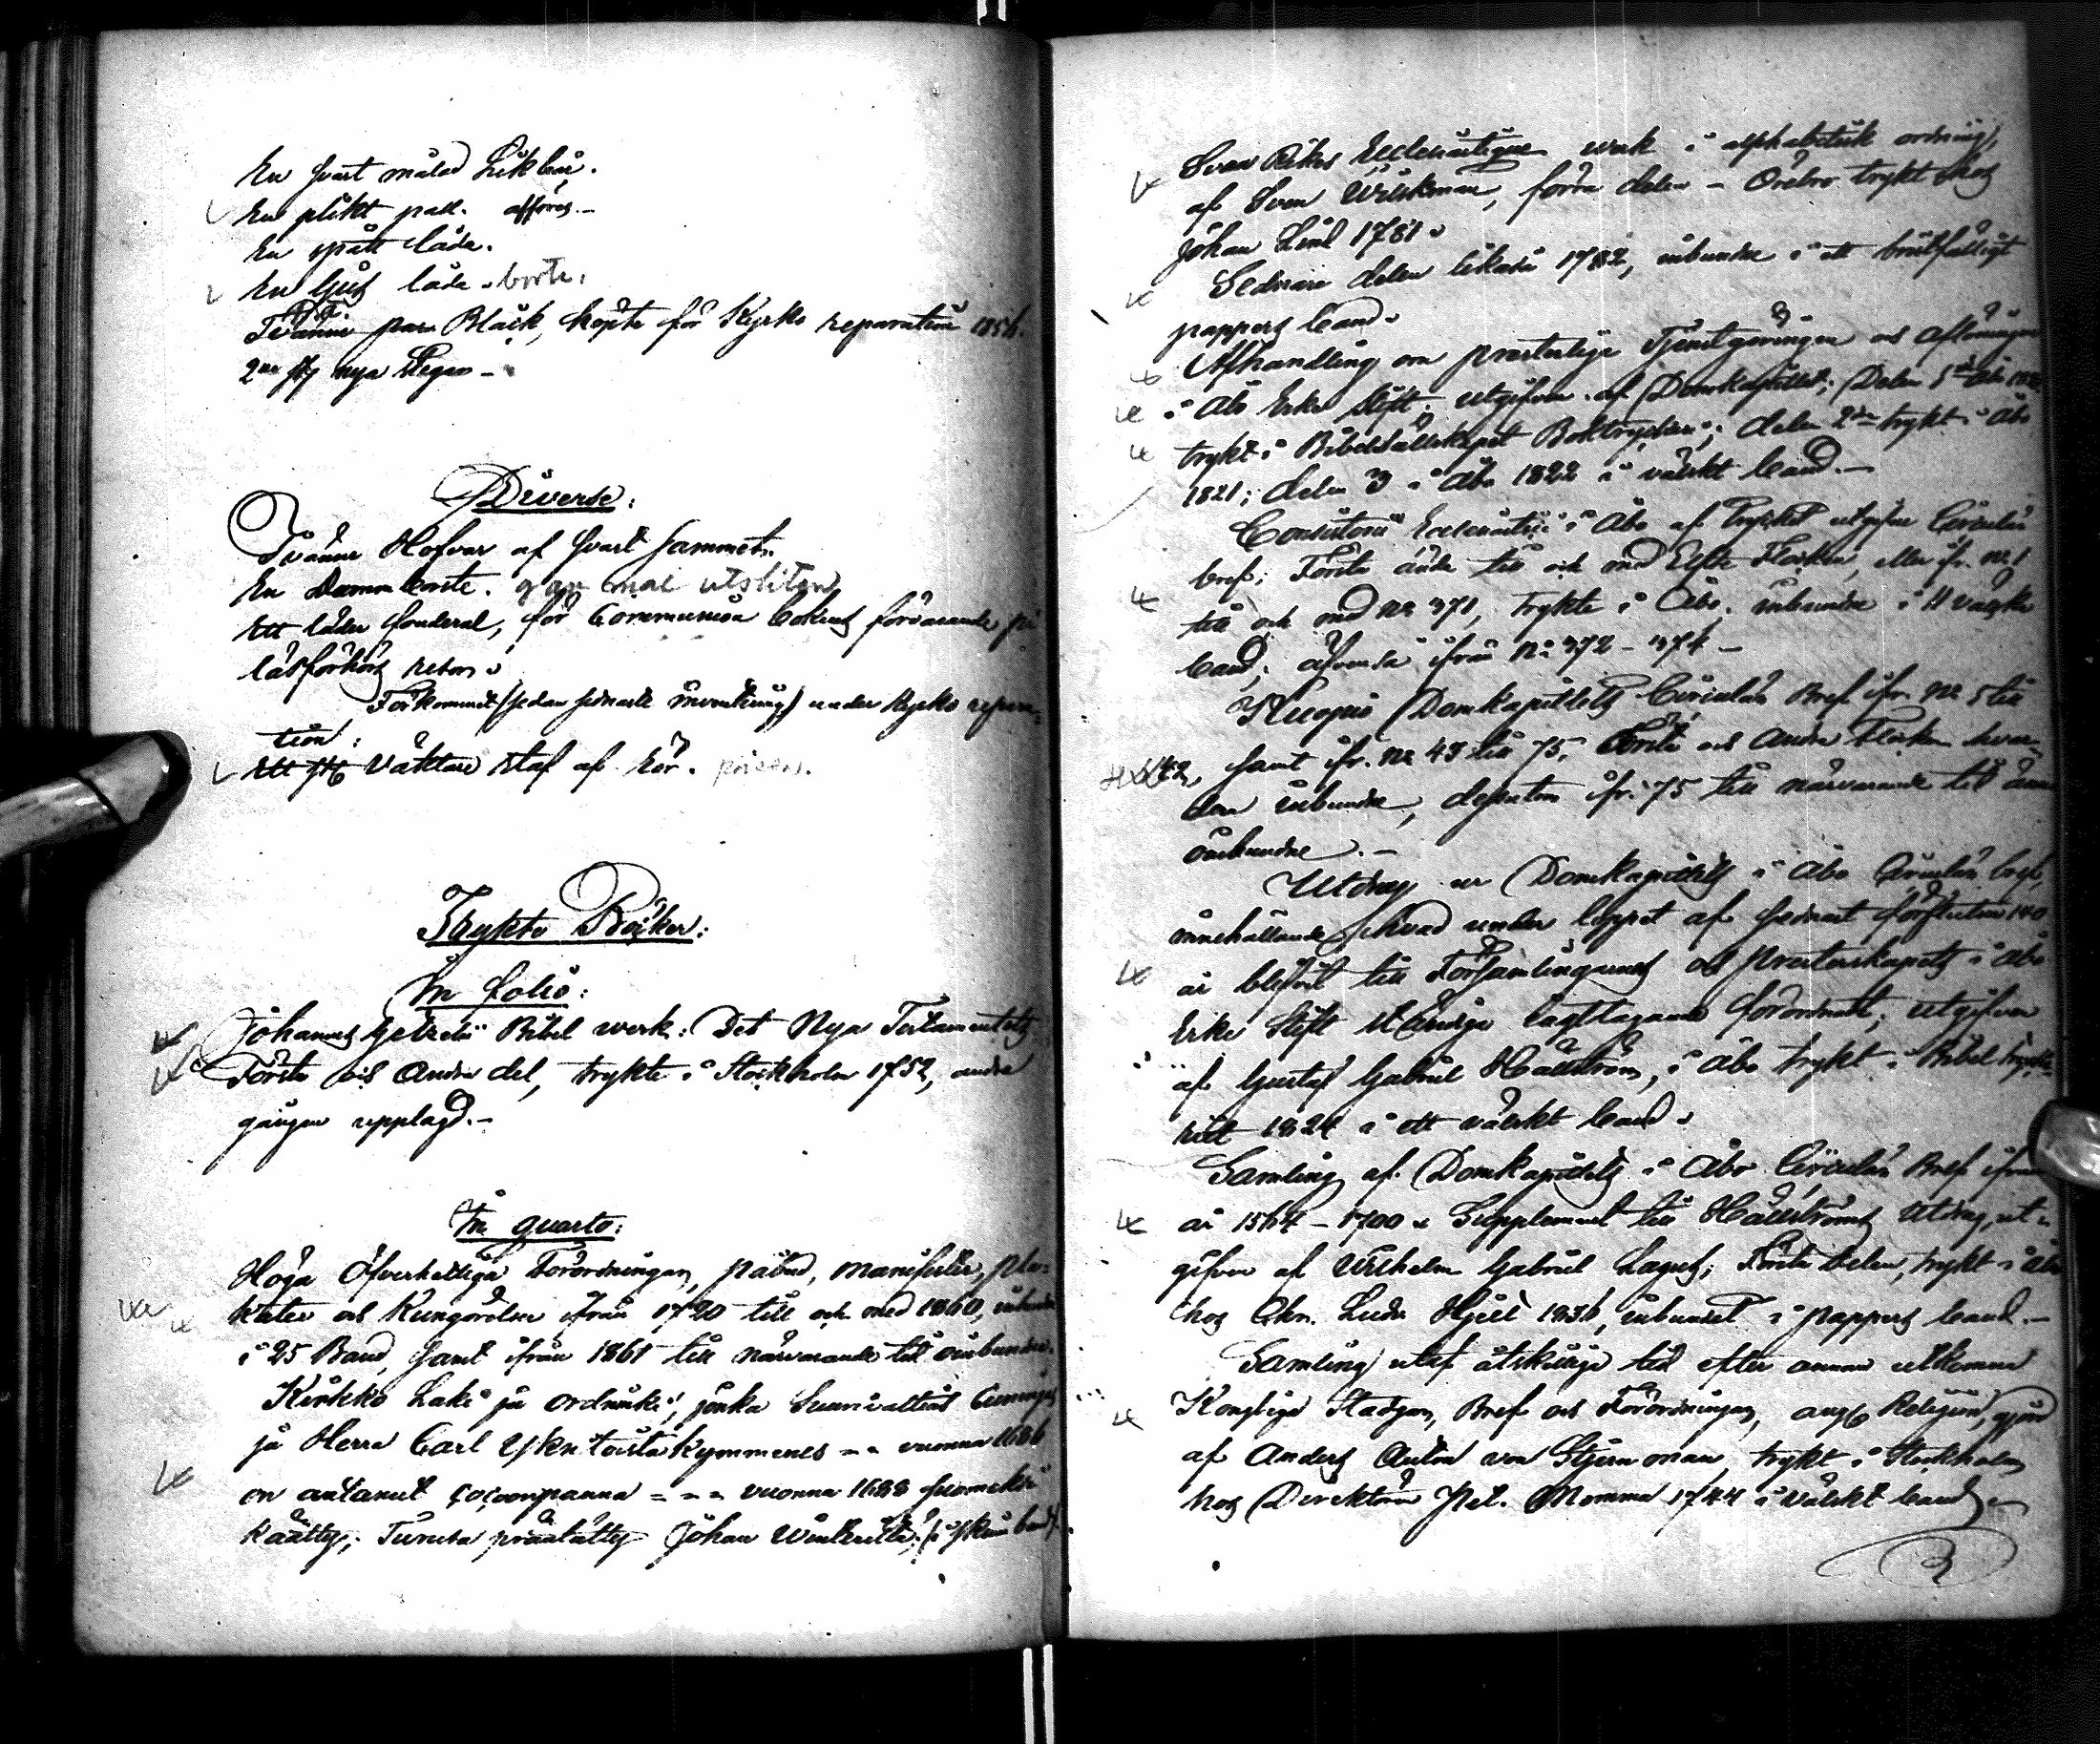 En svart målad Likbår.
En plikt pall. afföres.-
En spått låda.
En ljus låda. borte.
Tvänne par Black, köpte för Kyrko reparation 1856.
2ne st nya Stegar -
Diverse:
Tvänne Hofvar af svart sammet.
En Damm borste. gammal utsliten
Ett läder fouderal, för Communion bokens förvarande på
läsförhörs resor.
Förkommit (sedan sednaste inventering) under Kyrko repara-
tion:
Ett st Väktare staf af rör.
Tryckte Böcker:
In folio:
Johannes Gezelii Bibel werk: Det Nya Testamentets
Första och Andra del, trykte i Stockholm 1752, andra
gången upplagd.-
In quarto:
Höga Öfverhetliga Förordningar, påbud, manifester, pla-
kater och Kungörelser ifrån 1720 till och med 1860, inbundne
i 25 Band, samt ifrån 1861 till närvarande tid oinbundne.
Kirkko Laki ja ordninki, jonka Suurivaltias Cuningas
ja Herra Carl Yxitoistakymmenes -- vuonna 1686
on antanut coconpanna --- vuonna 1688 suomeksi
käätty; Turusa präntätty Johan Winterilda; (i skinn band)
Svea Rikes Ecclesiastique werk i alphabetisk ordning,
af Sven Wilskman, förra delen - Örebro trykt hos
Johan Lind 1781.
Sednare delen likaså 1782, inbundne i ett bristfälligt
pappers band.
Afhandling om presterliga Tjenstgöringen och aflöningen
i Åbo Erke Stift utgifven af Domkapitlet; Delen 1sta Åbo
trykt i Bibelsällskapets Boktryckeri; delen 2dra trykt i Åbo
1821; delen 3 i Åbo 1822 i välskt band.-
Consistorii Ecclesiastici i Åbo af Trycket utgifne Circulär
bref; Första ända till och med Elfte Flocken, eller ifr. No 1
till och med No 371, trykte i Åbo, inbundne i 11 välska
band; äfvenså ifrån No 372 - 374 -
Kuopio Domkapitlets Circulär Bref ifr. No 5 till
42, samt ifr. No 43 till 75, Första och Andra Flocken hvar-
dera inbundne, dessutom ifr. 75 till närvarande tid ännu
oinbundne.-
Utdrag ur Domkapitlets i Åbo Circulär bref,
innehållande hvad under loppet af sednast förflutne 140
år blifvit till Församlingarnes och Presterskapets i Åbo
Erke Stift ständiga iagttagande förordnadt; utgifven
af Gustaf Gabriel Hällström, i Åbo trykt i Bibel trycke-
riet 1824 i ett välskt band.
Samling af Domkapitlets i Åbo Circulär Bref ifrån
år 1564 - 1700. Supplement till Hällströms Utdrag, ut-
gifven af Wilhelm Gabriel Lagus; Första delen, trykt i Åbo
hos Chr. Ludv. Hjelt 1836, inbundet i pappers band.-
Samling utaf åtskillige tid efter annan utkomne
Kongliga Stadgar, Bref och Förordningar, ang. Religion, gjord
af Anders Anton von Stiernman, trykt i Stockholm
hos Direktörn Pet. Momma 1744 i välskt band.